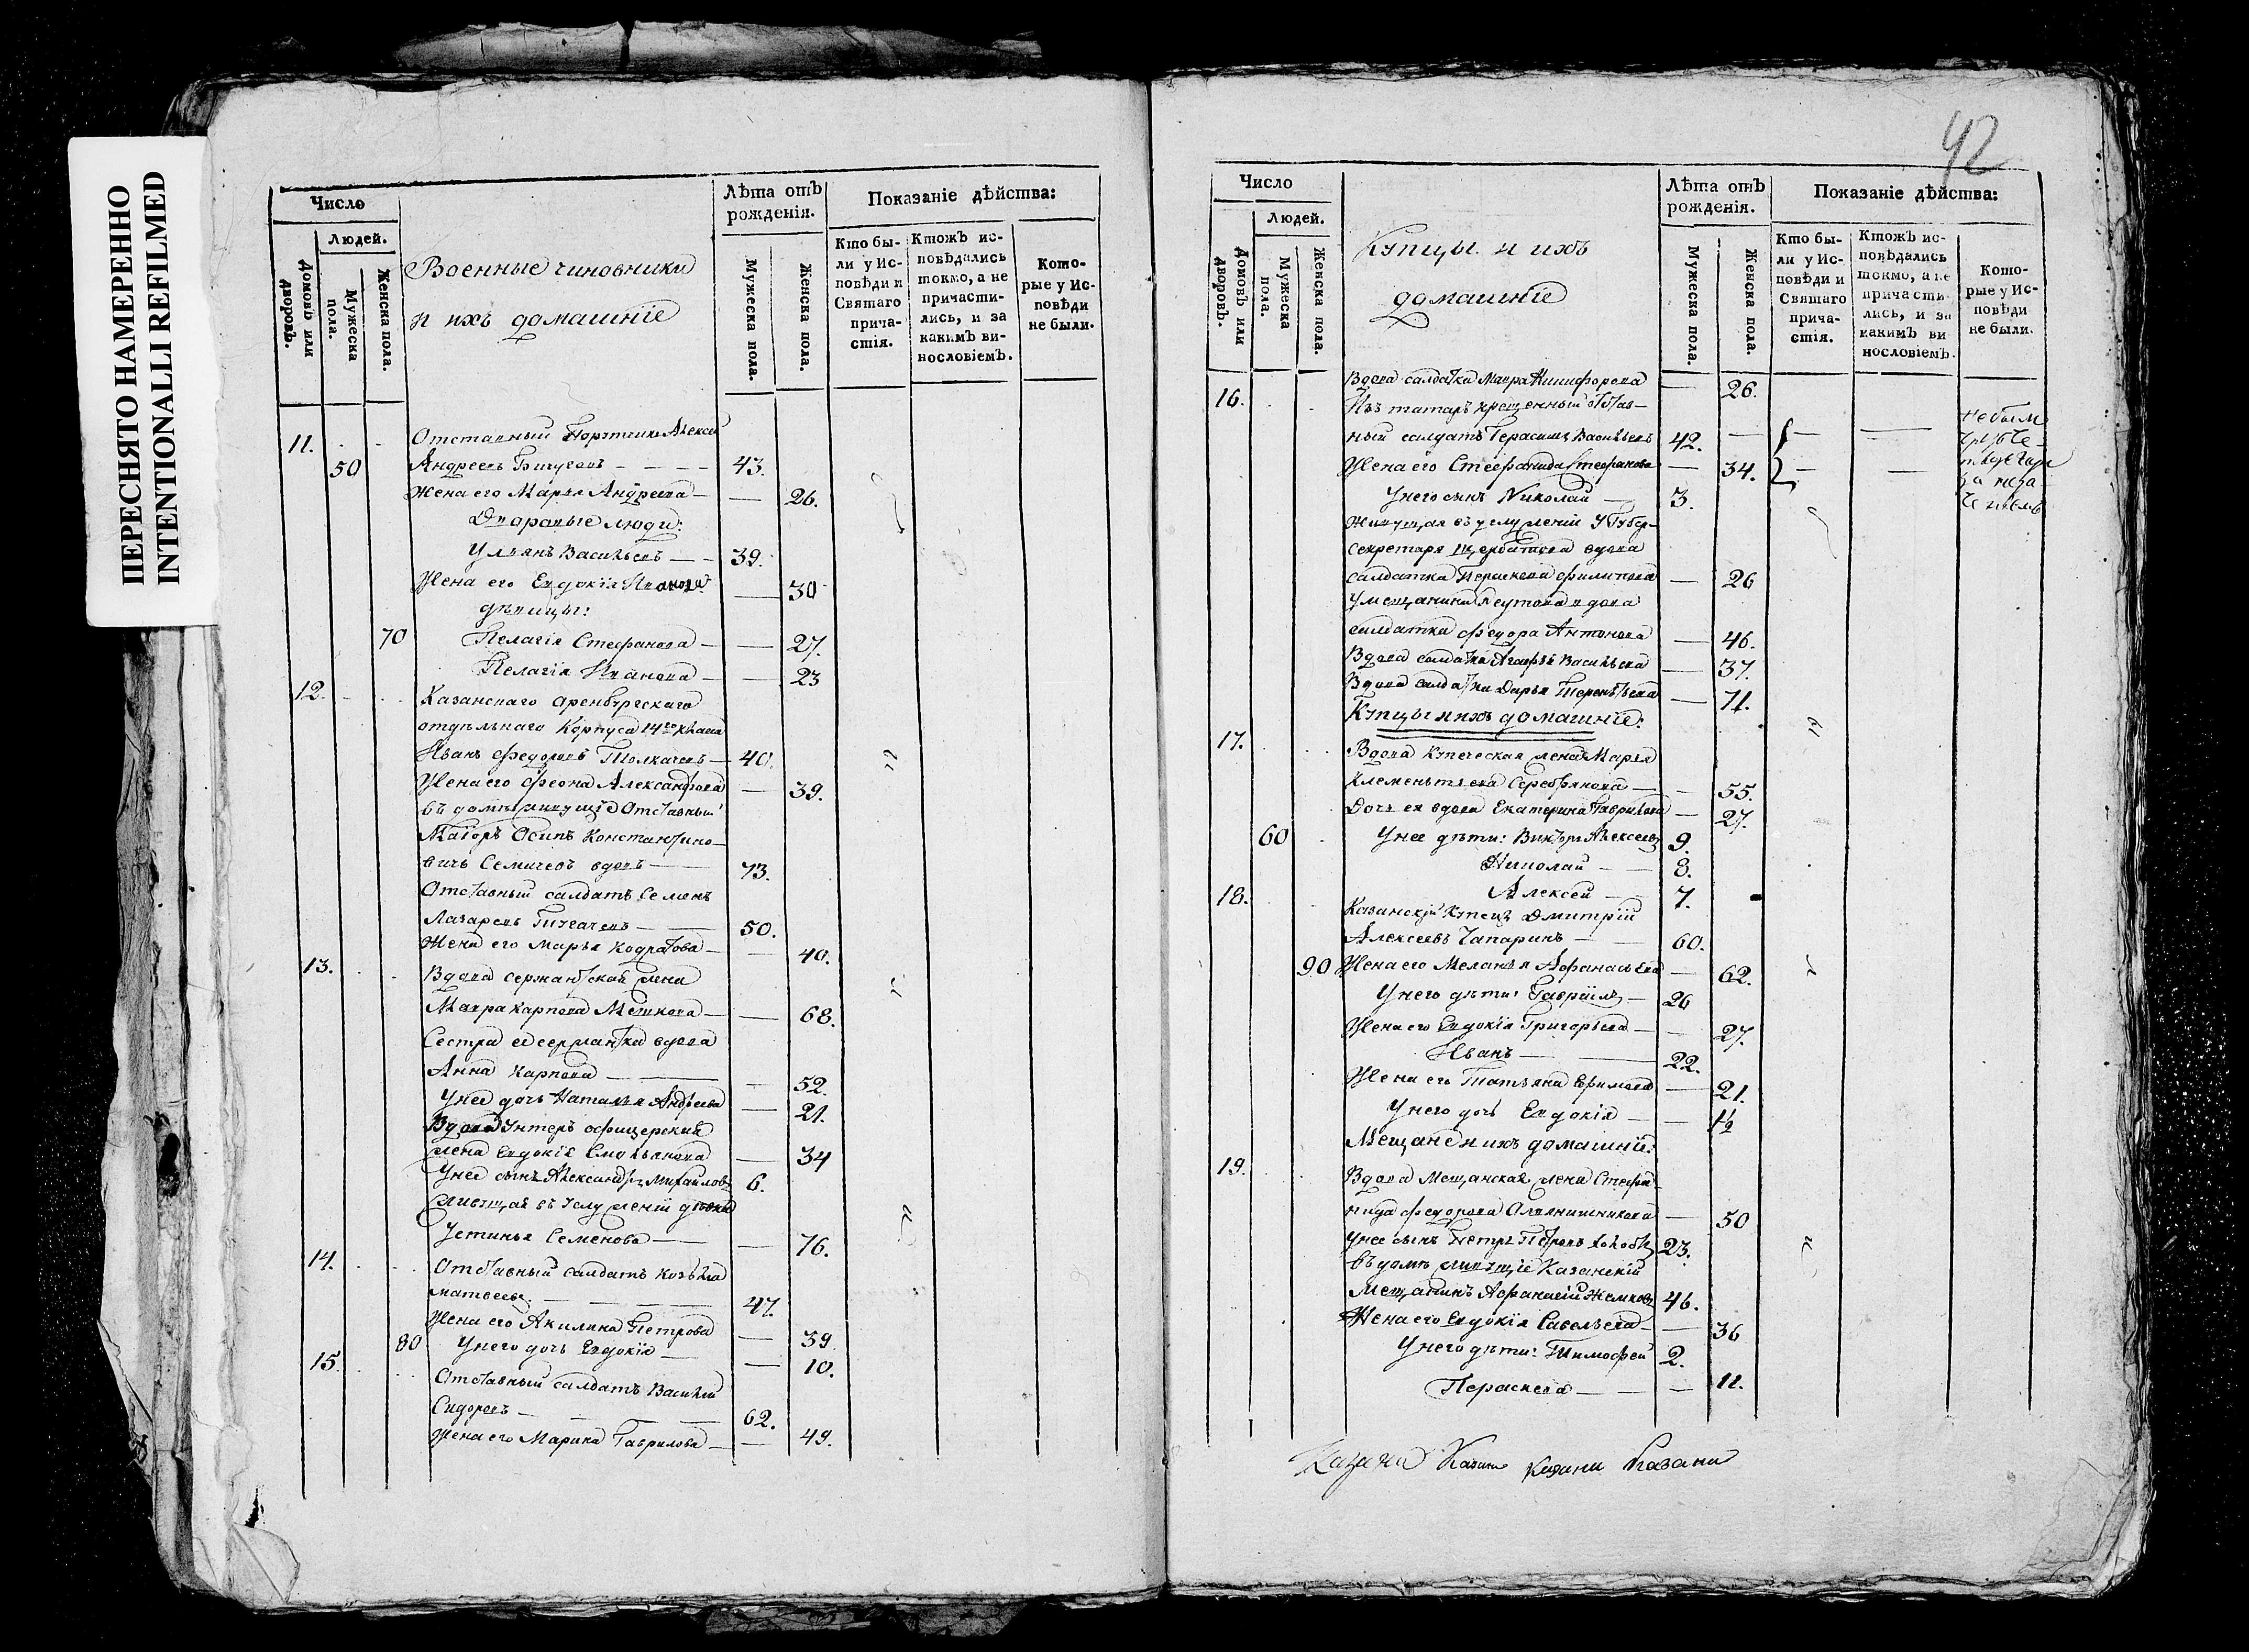 ПЕРЕСНЯТО НАМЕРЕННО
INTENTIONALLI REFILMED
Число
Людей.
Домовъ или дворовъ.
Мужеска пола.
Женска пола.
Военные чиновники
и ихъ домашніе
Лѣта отъ рожденія.
Мужеска пола.
Женска пола.
Показаніе дѣйства:
Кто бы-
ли у Ис-
повѣди и
Святаго
прича-
стія.
Ктожъ ис-
повѣдались
токмо, а не
причасти-
лись, и за
какимъ ви-
нословіемъ.
Кото-
рые у Ис-
повѣди
не были.
11. Отставный Порутчикъ Алексей
50 Андреевъ 43.
Жена его Марья Андреева 26.
Дворовые люди:
Ульянъ Васильевъ 39.
Жена его Евдокія Иванова 30
дѣвицы:
70 Пелагія Стефанова 27.
Пелагія Иванова 23
12. Казанскаго Оренбургскаго
отдѣльнаго Корпуса 14го класа
Иванъ Федоровъ Толмачевъ 40.
Жена его Феона Александрова 39.
въ домѣ живущіе Отставный
Маіоръ Осипъ Константино-
вичъ Семичевъ вдовъ 73.
Отставный салдатъ Семенъ
Лазаревъ 50.
Жена его Марья Кодратова 40.
13. Вдова сержантская жена
Мавра Карпова Мешкова 68.
Сестра ей сержантка вдова
Анна Карпова 52.
У нее дочь Наталья Андреева 21.
Вдова Унтеръ офицерская
жена Евдокія Емельянова 34
У нее сынъ Александръ Михайловъ 6.
Живущая въ услуженіи дѣвка
Устинья Семенова 76.
14. Отставный салдатъ Козьма
Матвеевъ 47.
Жена его Акилина Петрова 39.
80 У него дочь Евдокія 10.
15. Отставный салдатъ Василій
Сидоровъ 62.
Жена его Марина Гаврилова 49.
42
Число
Людей.
Домовъ или дворовъ.
Мужеска пола.
Женска пола.
Купцы и ихъ
домашніе
Лѣта отъ рожденія.
Мужеска пола.
Женска пола.
Показаніе дѣйства:
Кто бы-
ли у Ис-
повѣди и
Святаго
прича-
стія.
Ктожъ ис-
повѣдались
токмо, а не
причасти-
лись, и за
какимъ ви-
нословіемъ.
Кото-
рые у Ис-
повѣди
не были.
Вдова салдатка Мавра Никифорова 26.
16. Изъ татаръ крещенный отстав-
ный салдатъ Герасимъ Васильевъ 42.
Жена его Стефанида Стефанова 34.
У него сынъ Николай 3.
не были
Живущая въ услуженіи у Губер-
секретаря Щербакова вдова
салдатка Параскева Филипова 26
У мещанина Реутова вдова
салдатка Федора Антонова 46.
Вдова салдатка Агафья Васильева 37.
Вдова салдатка Дарья Терентьева 71.
Купцы и ихъ домашніе:
17. Вдова купеческая жена Марья
Клементьева Серебрякова 55.
Дочь ея вдова Екатерина Гаврилова 27.
60 У нее дѣти: Викторъ Алексеевъ 9.
Николай 8.
Алексей 7.
18. Казанскій Купецъ Дмитрій
Алексеевъ Чапаринъ 60.
90 Жена его Меланья Афанасьева 62.
У него дѣти: Гавріилъ 26
Жена его Евдокія Григорьева 27.
Иванъ 22.
Жена его Татьяна Ефимова 21.
У него дочь Евдокія 1½
Мещане и ихъ домашніе:
19. Вдова Мещанская жена Стефа-
нида Федорова Оловянишникова 50
У нее сынъ Петръ Петровъ 23.
Въ домѣ живущіе Казанскій
Мещанинъ Афанасій Жемковъ 46.
Жена его Евдокія Савельева 36
У него дѣти: Тимофей 2.
Параскева 11.
Казани Казани Казани Казани